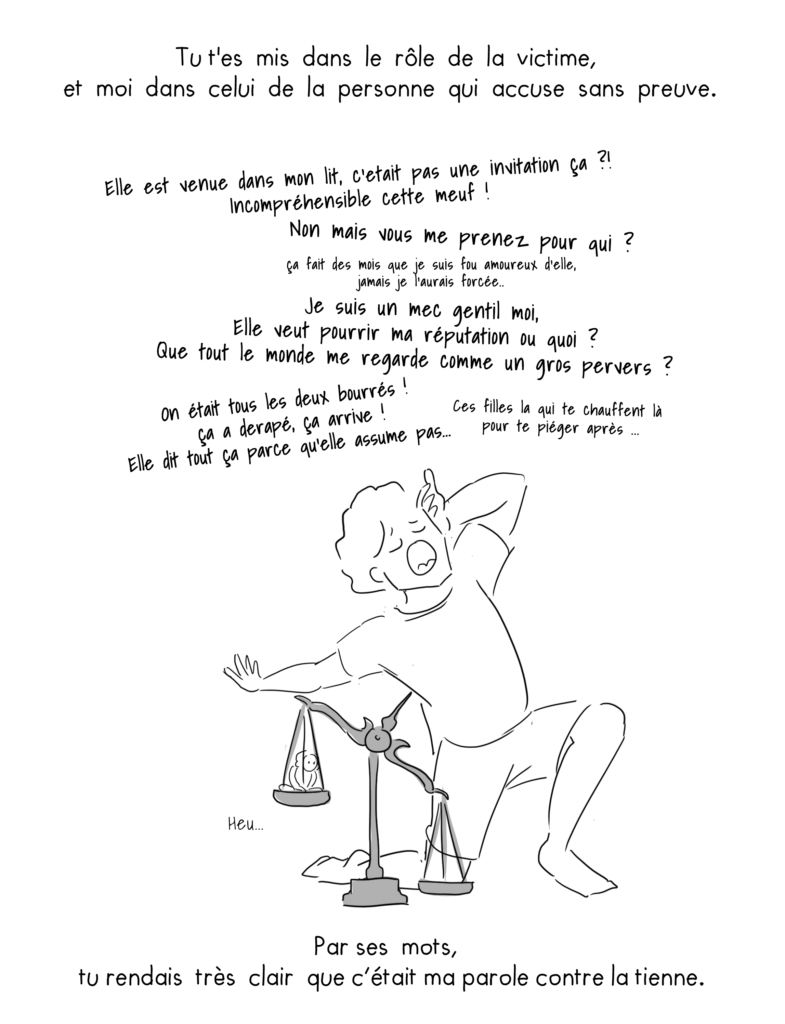 Tu t'es mis dans le rôle de la victime,
et moi dans celui de la personne qui accuse sans preuve.
Elle est venue dans mon lit, c'etait pas une invitation ça ?!
Incompréhensible cette meuf !
Non mais vous me prenez pour qui ?
ça fait des mois que je suis fou amoureux d'elle,
jamais je l'aurais forcée..
Je suis un mec gentil moi,
Elle veut pourrir ma réputation ou quoi ?
Que tout le monde me regarde comme un gros pervers ?
On était tous les deux bourrés !
ça a derapé, ça arrive !
Elle dit tout ça parce qu'elle assume pas...
Ces filles la qui te chauffent là
pour te piéger après ...
Heu...
Par ses mots,
tu rendais très clair que c'était ma parole contre la tienne.